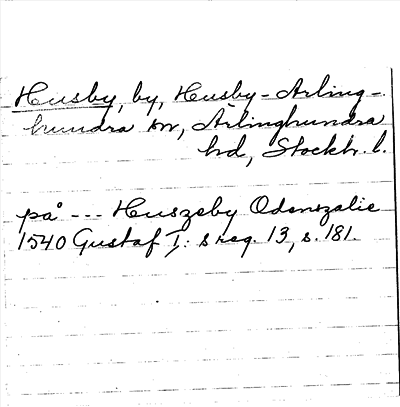 Husby, by, Husby-Ärling-
hundra sn, Ärlinghundra
hd, Stockh. l.
på --- Huszeby Odenszalie
1540 Gustaf I: s reg. 13, s. 181.